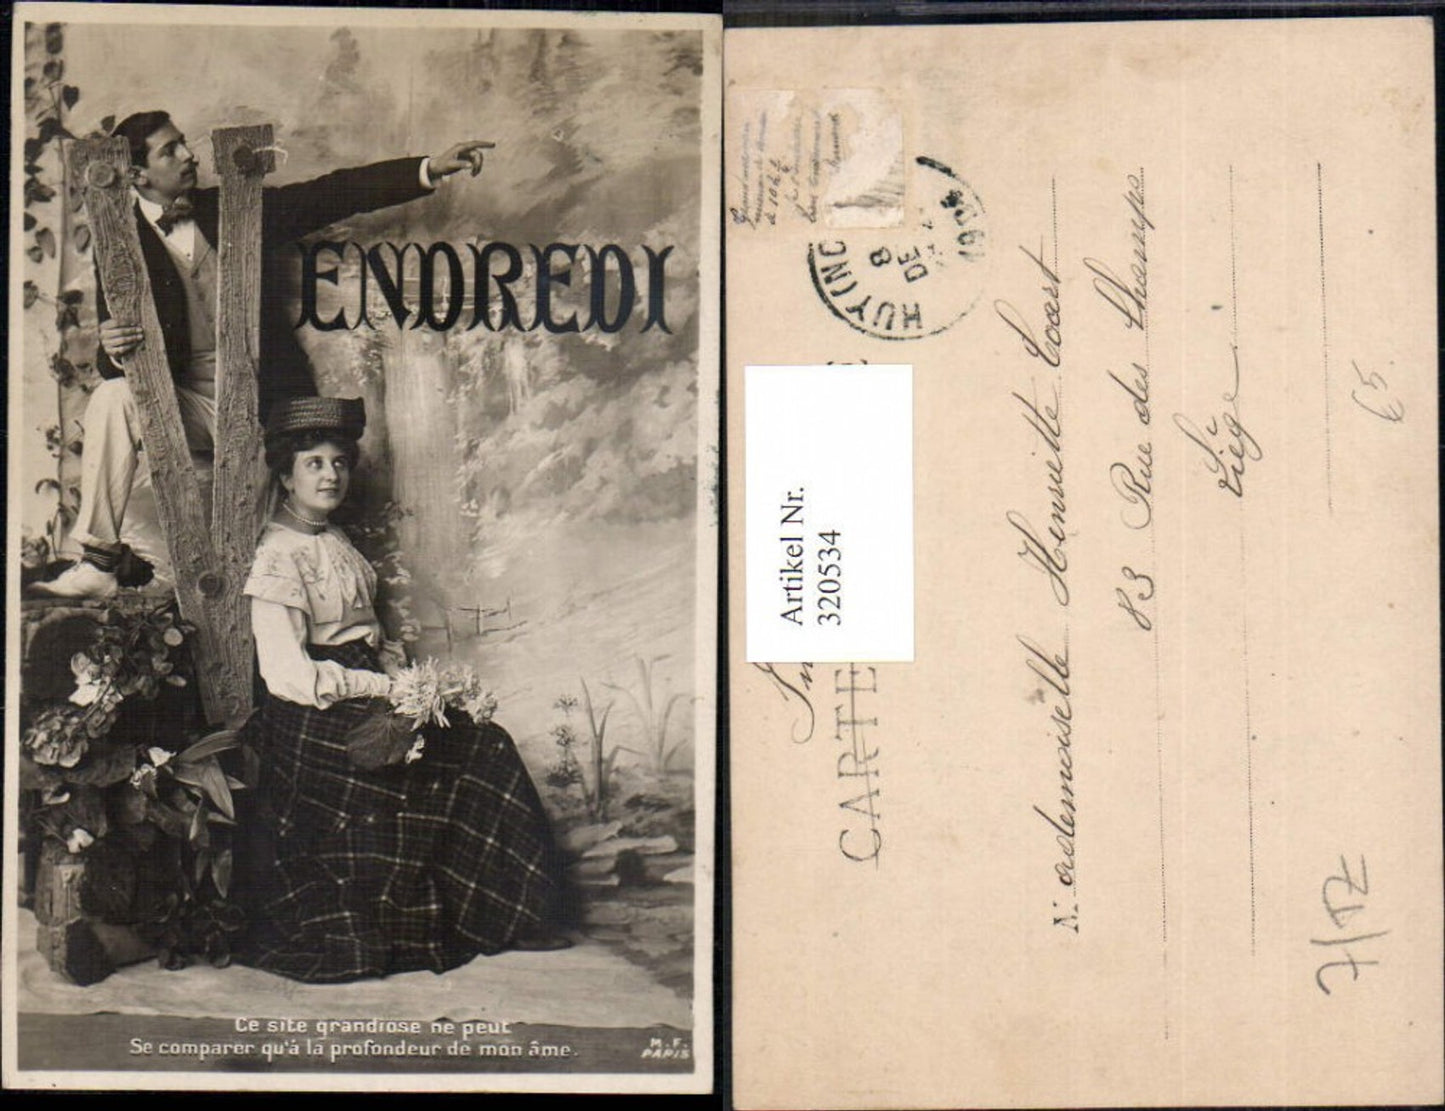 VENDREDI
Ce site grandiose ne peut
Se comparer qu'à la profondeur de mon âme.
M.F.
PARIS
HUY (NO
8
DE
1904
Artikel Nr.
320534
CARTE
Mademoiselle Henriette
83 Rue des Champs
Liège
65.